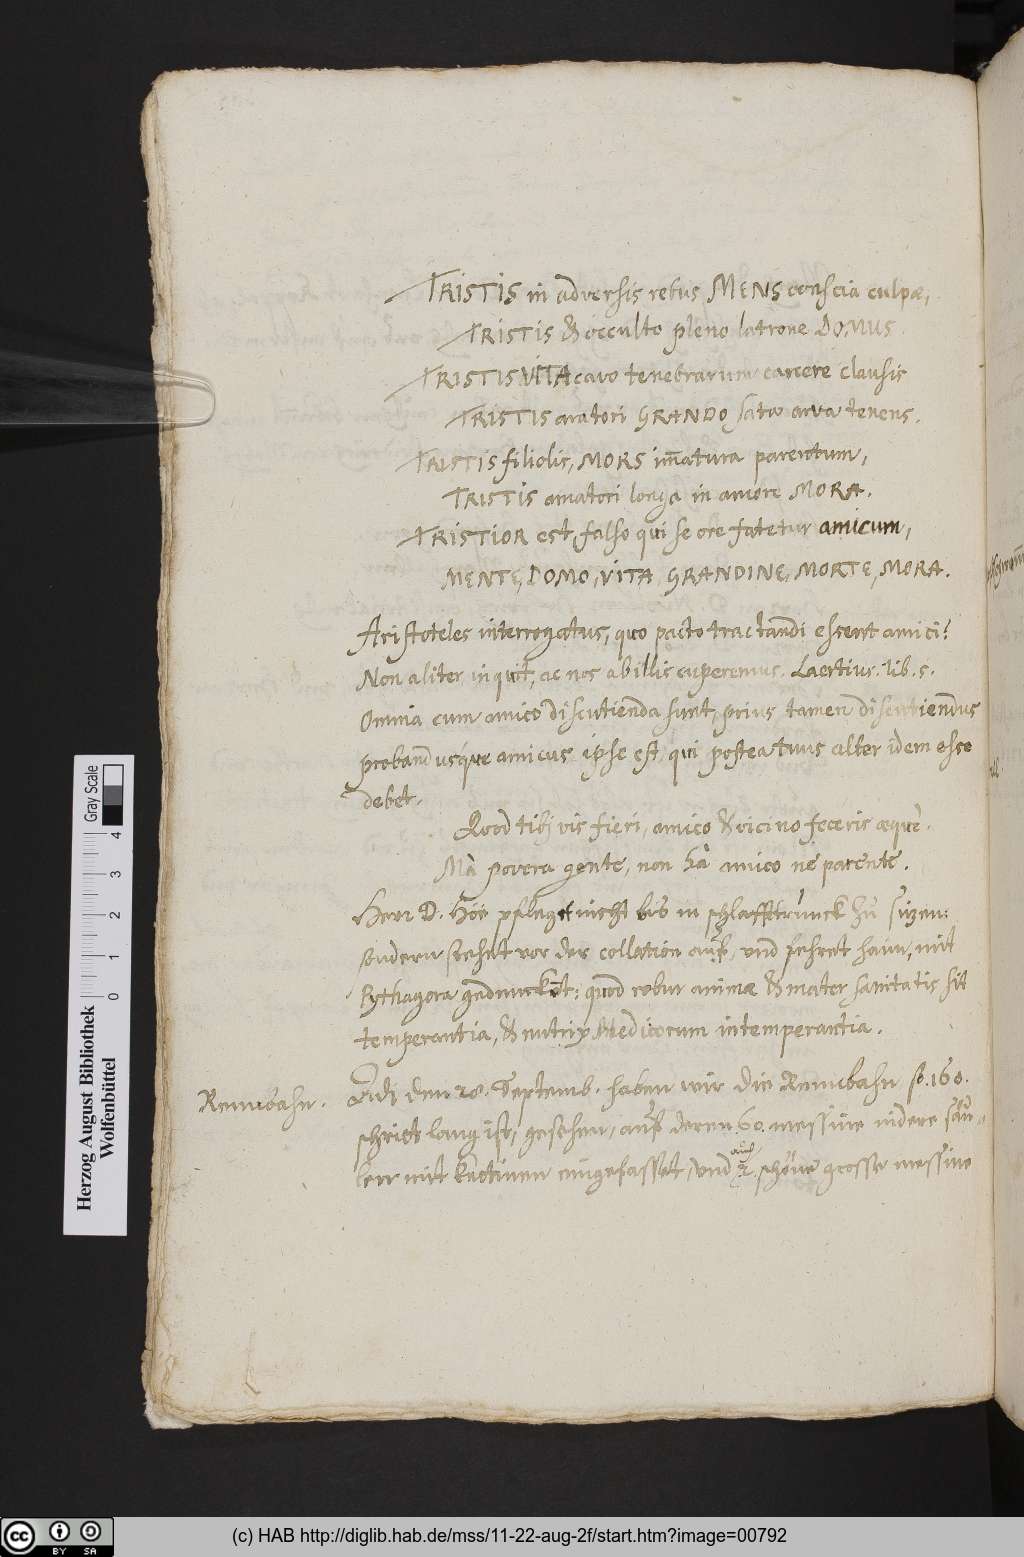 TRISTIS in adversis rebus MENS conscia culpæ,
TRISTIS & occulto pleno latrone DOMUS.
TRISTIS VITA cavo tenebrarum carcere clausis
TRISTIS aratori GRANDO sata arva tenens.
TRISTIS filiolis, MORS im̄atura parentum,
TRISTIS amatori longa in amore MORA.
TRISTIOR est, falso qui se ore fatetur amicum,
MENTE, DOMO, VITA, GRANDINE, MORTE, MORA.
Aristoteles interrogatus, quo pacto tractandi essent amici?
Non aliter, inquit, ac nos ab illis cuperemus. Laertius. lib. 5.
Omnia cum amico discutienda sunt, prius tamen discutiendus
probandusque amicus ipse est, qui postea tuus alter idem esse
debet.
Quod tibj vis fieri, amico & vicino feceris æquè.
Mà povera gente, non hà amico nè parente.
Herr D. Höe pfleget nicht bis in schlafftrunck zu sizen:
sondern stehet vor der collation auf, und fehret haim, mit
Pythagora gedenckēt: quod robur animæ & mater sanitatis sit
temperantia, & nutrix Medicorum intemperantia.
Rennebahn.
Adj den 28. Septemb. haben wir die Rennebahn so. 160.
schritt lang ist, gesehen, auf deren 60. messine nidere säu-
len mit kettinen eingefasset, und auch 2. schöne grosse messine
Herzog August Bibliothek
Wolfenbüttel
Gray Scale
0 1 2 3 4
cc BY SA
(c) HAB http://diglib.hab.de/mss/11-22-aug-2f/start.htm?image=00792